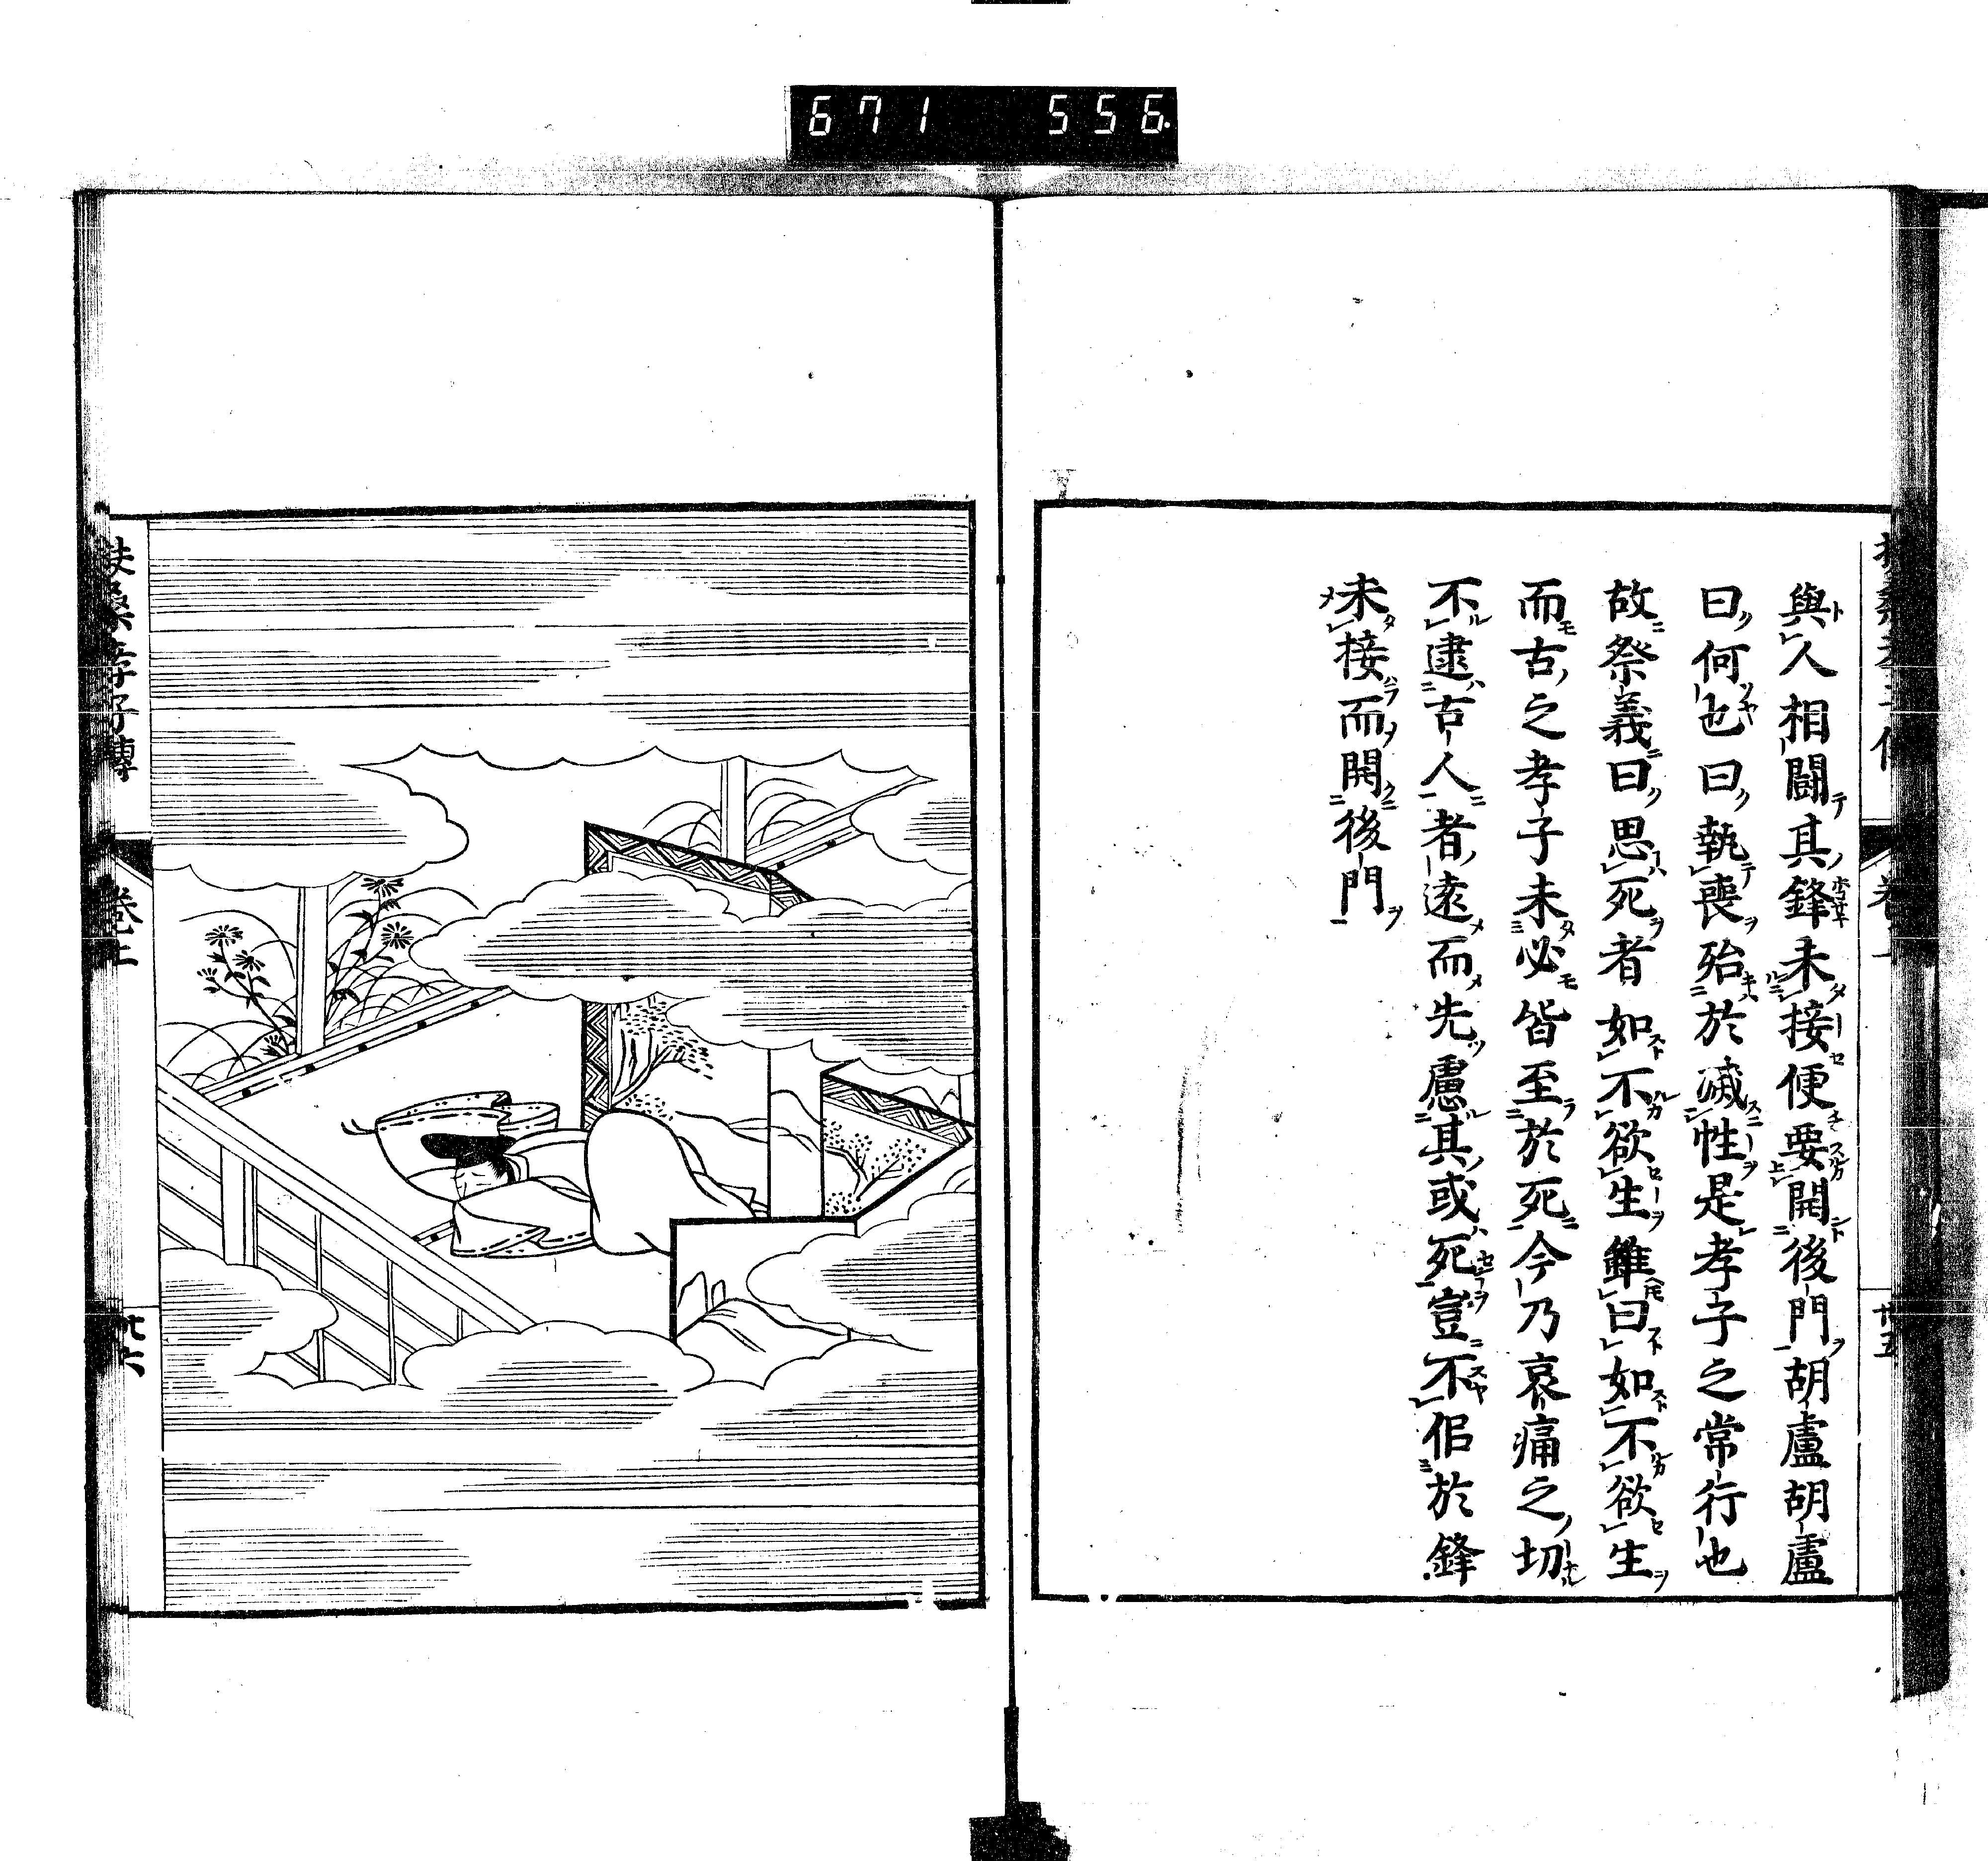 671 556
與人相鬪其鋒未接便要開後門胡盧胡盧
曰何也曰執喪殆於滅性是孝子之常行也
故祭義曰思死者如不欲生雖曰如不欲生
而古之孝子未必皆至於死今乃哀痛之切
不逮古人者遠而先慮其或死豈不侣於鋒
未接而開後門
扶桑孝子傳
卷上
廿六
廿五